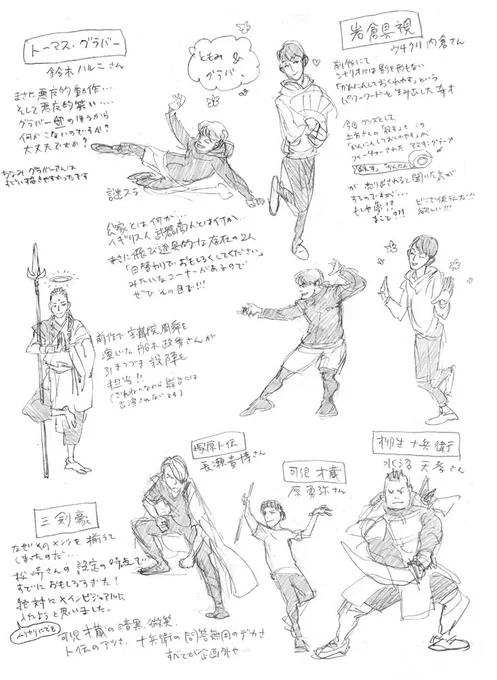 トーマス・グラバー
鈴木ハルニさん
また悪戯的動作…
そして悪戯的笑い…
グラバー のほうから
何かこないのですか?
大丈夫ですか?
ちなみにグラバーさんは
描きやすかったです
ともみ &
グラバ
謎スラ
岩倉具視
ウチクリ内倉さん
前作にて
シナリオには影も形もない
「かんにんしておくれやす」という
パワーワードを生み出した奇才
今回グッズとして
土方さんの「殺す」と
「かんにんしておくれやす」が
フィーチャーされたマスキングテープ
が ねりばされると聞いた気が
するのですが…
もしや夢!?
まことで!?
どこで買えるんだ…
欲しい!!!
公家とは何か…
イギリス人武器商人とは何か
まさに飛び道具的な存在の2人
「日替わりでおもしろくしてください」
みたいなコーナーがあるので
ぜひその目で!!!
前作で宝蔵院胤舜を
演じた 船木政秀さんが
引きつづき殺陣を
担当!!
(ざんねんながら舞台には
出演されないです)
塚原卜伝
長瀬貴博さん
可児才蔵
原勇弥さん
柳生十兵衛
水沼天孝さん
三剣豪
なぜこのメンツを揃えて
しまったのだ…
松崎さんの設定の時点で…
すでにおもしろすぎた!
絶対にメインビジュアルに
入れようと思いました。
可児才蔵の暗黒微笑、
卜伝のアツさ、十兵衛の問答無用のデカさ
すべてが企画外や…